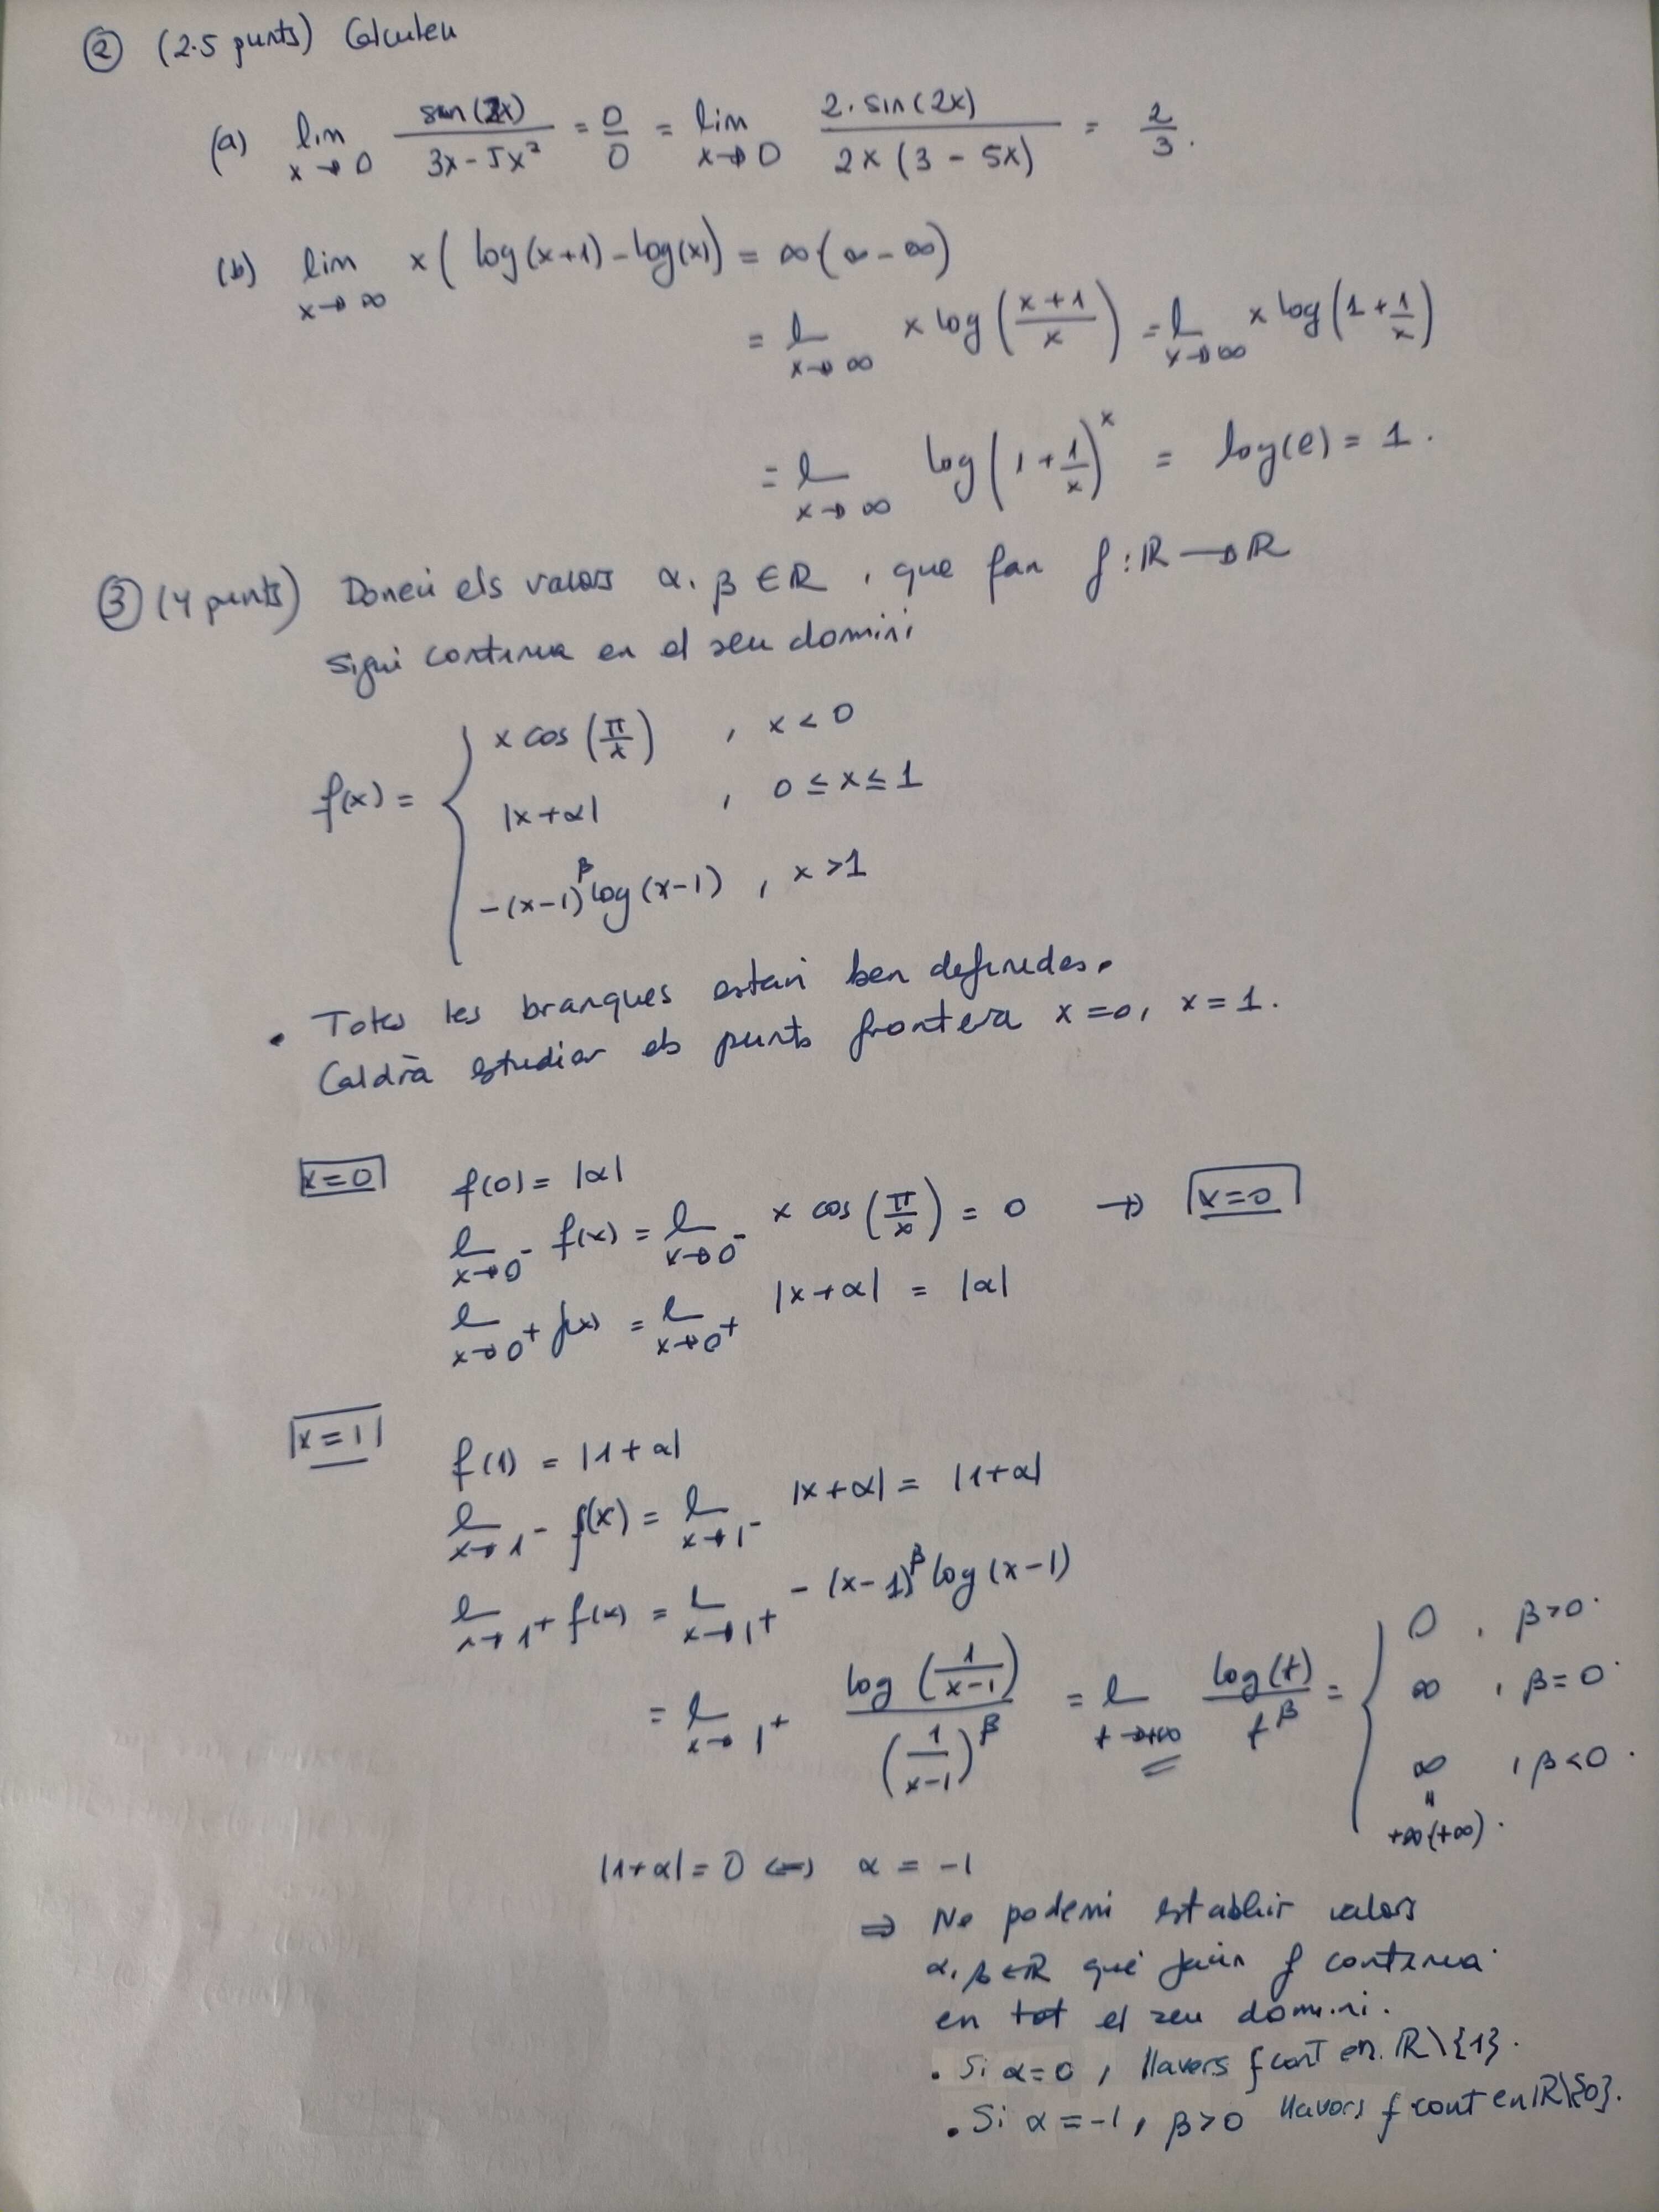 ② (2.5 punts) Calculeu
(a) lim x→0 sin(2x) / 3x-5x² = 0/0 = lim x→0 2·sin(2x) / 2x(3-5x) = 2/3.
(b) lim x→∞ x(log(x+1)-log(x)) = ∞(∞-∞)
= l x→∞ x log((x+1)/x) = l x→∞ x log(1+1/x)
= l x→∞ log(1+1/x)^x = log(e) = 1.
③ (4 punts) Doneu els valors α, β ∈ ℝ, que fan f: ℝ → ℝ
sigui contínua en el seu domini
f(x) = { x cos(π/x) , x < 0
|x+α| , 0 ≤ x ≤ 1
-(x-1)^β log(x-1) , x > 1
• Totes les branques estan ben definides.
Caldrà estudiar els punts frontera x=0, x=1.
x=0 f(0) = |α|
l x→0⁻ f(x) = l x→0⁻ x cos(π/x) = 0 → x=0
l x→0⁺ f(x) = l x→0⁺ |x+α| = |α|
x=1 f(1) = |1+α|
l x→1⁻ f(x) = l x→1⁻ |x+α| = |1+α|
l x→1⁺ f(x) = l x→1⁺ -(x-1)^β log(x-1)
= l x→1⁺ log(1/(x-1)) / (1/(x-1))^β = l t→+∞ log(t)/t^β = { 0 , β>0.
∞ , β=0.
∞ , β<0.
"
+∞(+∞).
|1+α| = 0 ⟺ α = -1
⇒ No podem establir valors
α, β ∈ ℝ que facin f contínua
en tot el seu domini.
• Si α=0, llavors f cont en ℝ\{1}.
• Si α=-1, β>0 llavors f cont en ℝ\{0}.